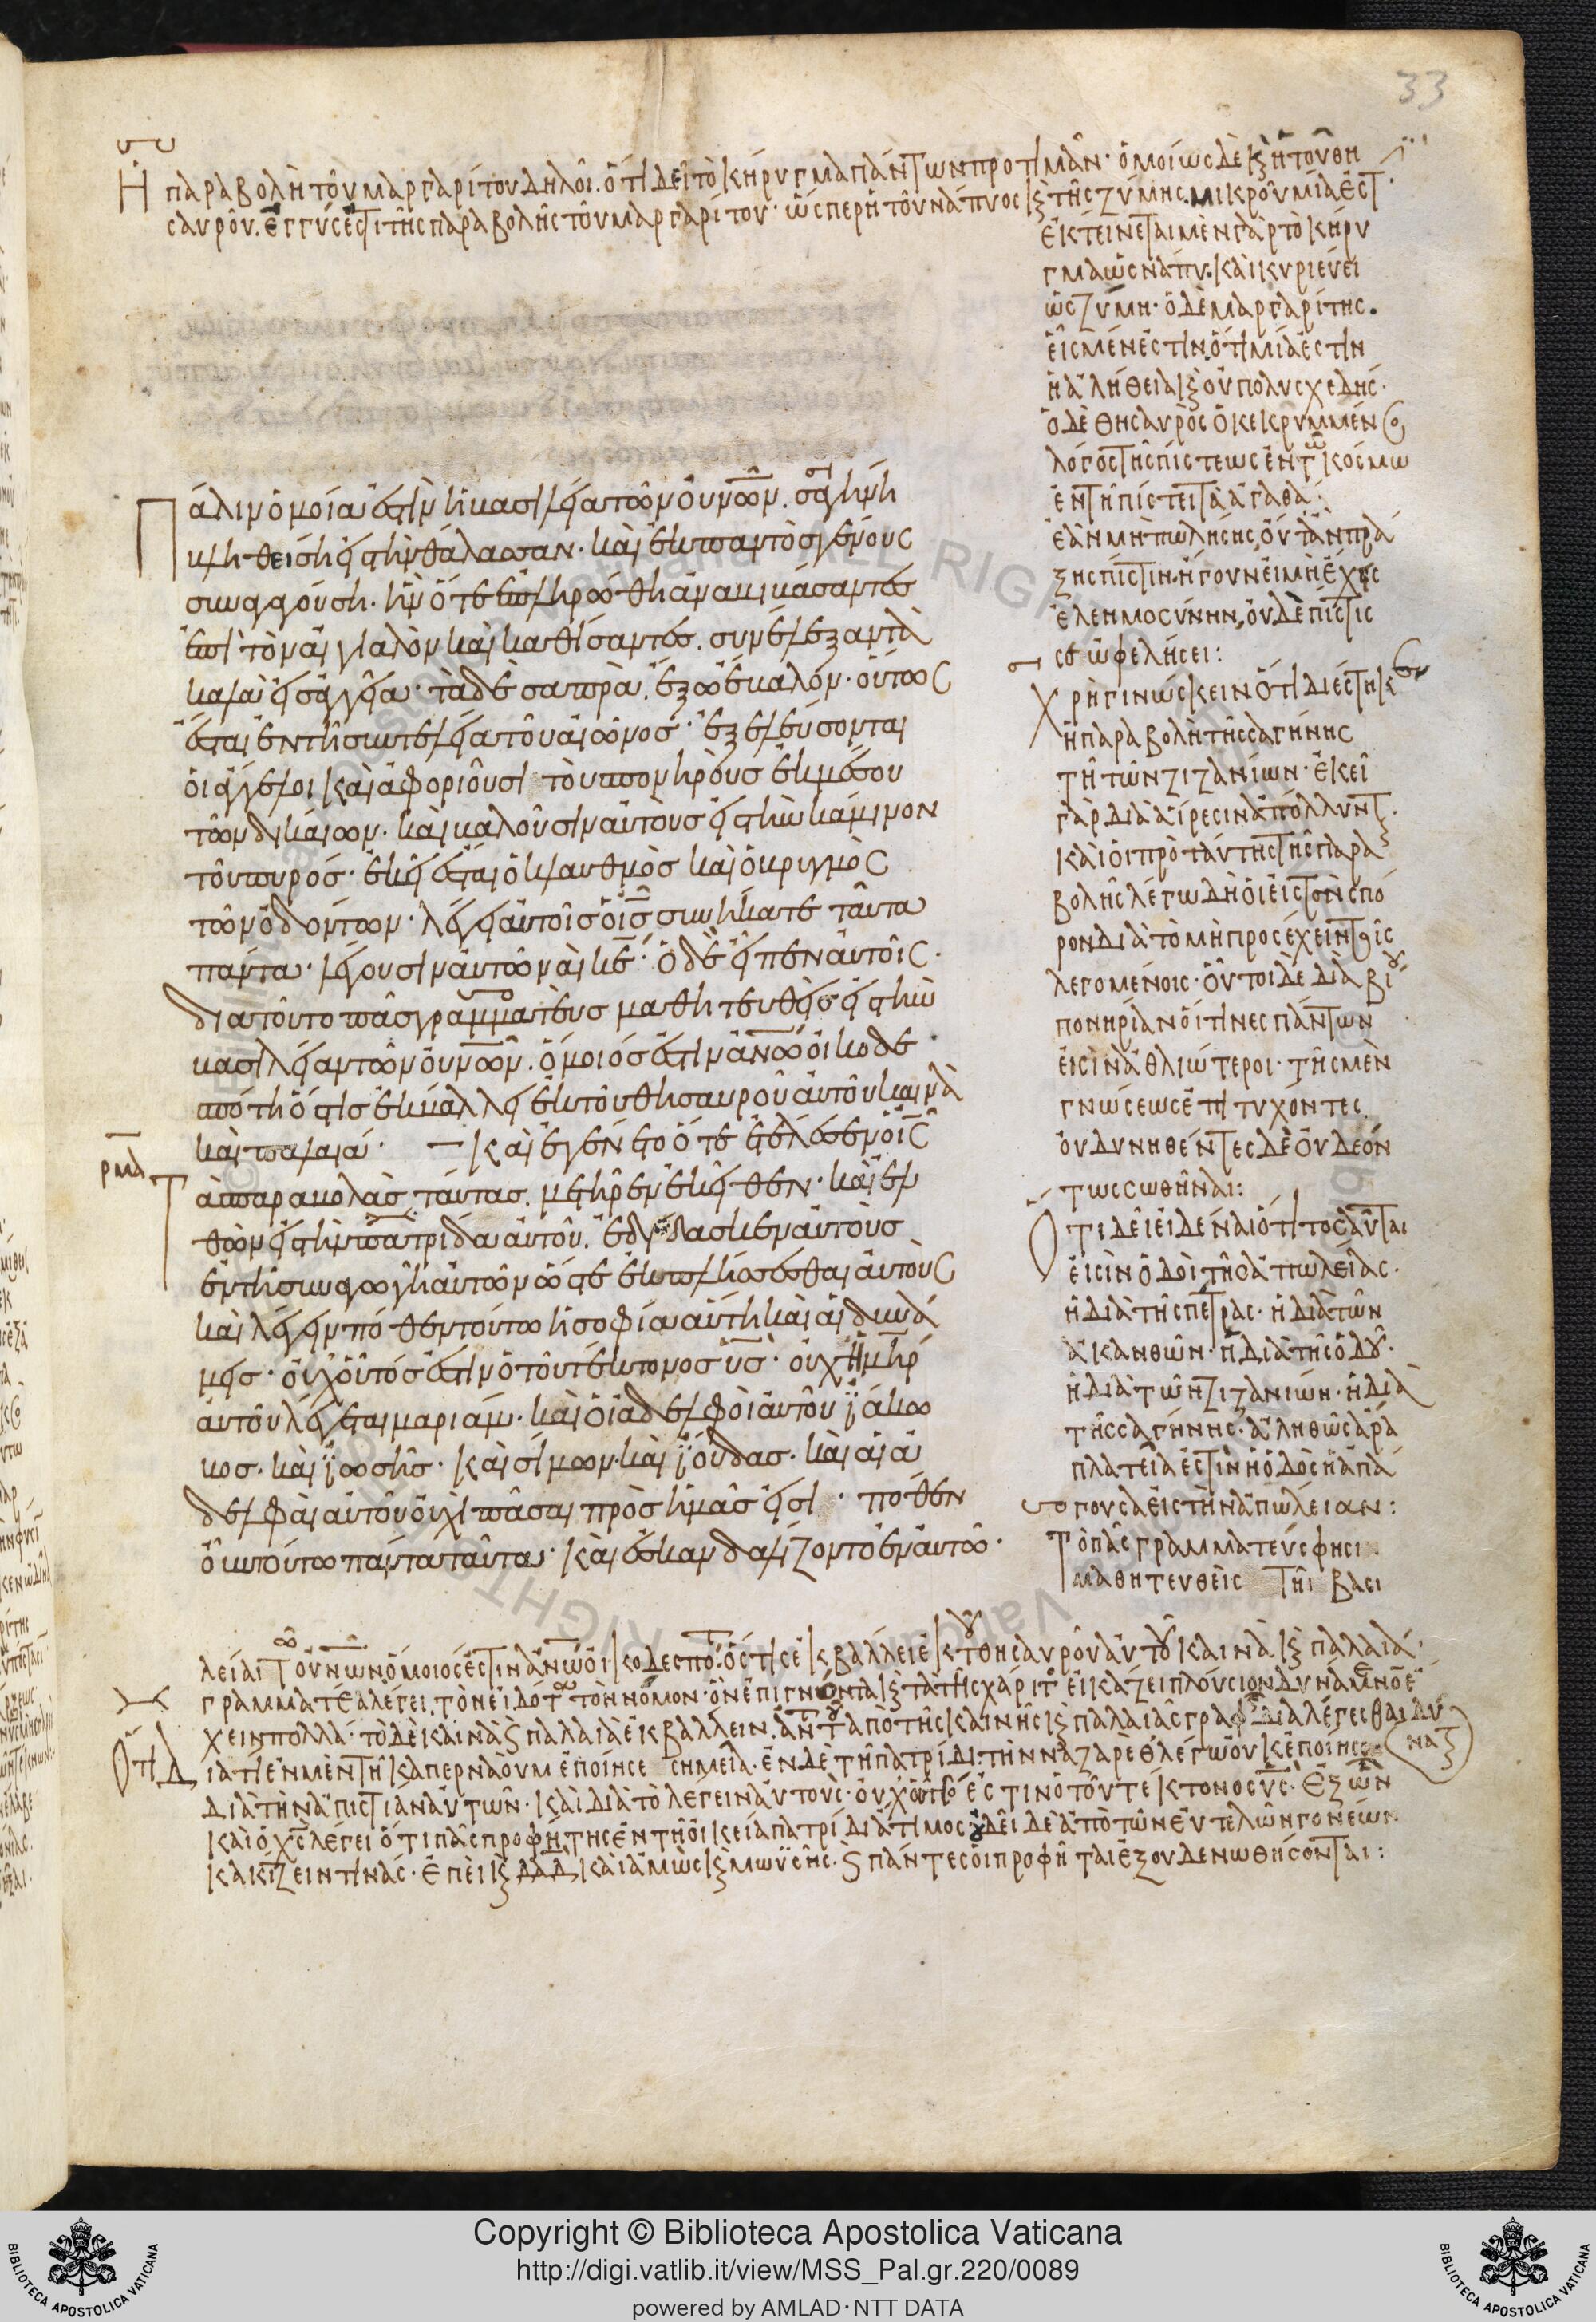 33
Ἡ παραβολὴ τοῦ μαργαρίτου δηλοῖ. ὅτι δεῖ τὸ κήρυγμα πάντων προτιμᾶν· ὁμοίως δὲ κ(αὶ) ἡ τοῦ θη
σαυροῦ. ἐγγύς ἐστι τῆς παραβολῆς τοῦ μαργαρίτου· ὥσπερ ἡ τοῦ νάπυος κ(αὶ) τῆς ζύμης. μικροῦ μία ἐστ
ἐκτείνεται μὲν γὰρ τὸ κήρυ
γμα ὡς νάπυ. καὶ κυριεύει
ὡς ζύμη· ὁ δὲ μαργαρίτης.
εἷς μέν ἐστιν, ὅτι μία ἐστὶν
ἡ ἀλήθεια κ(αὶ) οὐ πολυσχεδής·
ὁ δὲ θησαυρὸς ὁ κεκρυμμένος
λόγος τῆς πίστεως ἐν τῶ κόσμω
ἐν τῆ πίστει τὰ ἀγαθά:
ἐὰν μὴ πωλήσης, οὐ
ξης πίστιν. ἤγουν εἰ μὴ ἔχεις
ἐλεημοσύνην, οὐδὲ πίστις
σε ὠφελήσει:
Χρὴ γινώσκειν ὅτι διέστηκεν
ἡ παραβολὴ τῆς σαγήνης
τῆ τῶν ζιζανίων· ἐκεῖ
γὰρ διὰ αἵρεσιν ἀπόλλυντ
καὶ οἱ πρὸ ταύτης τῆς παρα
βολῆς λέγω δὴ οἱ εἰς τὸν σπό
ρον διὰ τὸ μὴ προσέχειν τοῖς
λεγομένοις· οὗτοι δὲ διὰ βίου
πονηρίαν οἵτινες πάντων
εἰσὶν ἀθλιώτεροι· τῆς μὲν
γνώσεως ἐπιτυχόντες
οὐ δυνηθέντες δὲ οὐδε ὅν
τως σωθῆναι:
Ὅτι δεῖ εἰδέναι ὅτι τοσαῦται
εἰσὶν ὁδοὶ τῆς ἀπωλείας·
ἢ διὰ τῆς πέτρας· ἢ διὰ τῶν
ἀκανθῶν· ἢ διὰ τῆς ὁδοῦ·
ἢ διὰ τῶν ζιζανίων· ἢ διὰ
τῆς σαγήνης· ἀληθῶς ἄρα
πλατεῖα ἐστὶν ἡ ὁδὸς ἡ ἀπά
γουσα εἰς τὴν ἀπώλειαν:
Τὸ πᾶς γραμματεύς φησι
μαθητευθεὶς τῆι βασι
Πάλιν ὁμοία ἐστὶν ἡ βασιλεία τῶν οὐνῶν. σαγήνη
βληθείση εἰς τὴν θάλασσαν· καὶ ἐκ παντὸς γένους
συναγούση. ἣν ὅτε ἐπληρώθη ἀναβιβάσαντες
ἐπὶ τὸν αἰγιαλὸν καὶ καθίσαντες. συνέλεξαν τὰ
καλὰ εἰς ἀγγεῖα· τὰ δὲ σαπρὰ. ἔξω ἔβαλον· οὕτως
ἔσται ἐν τῆ συντελεία τοῦ αἰῶνος· ἐξελεύσονται
οἱ ἄγγελοι καὶ ἀφοριοῦσι τοὺς πονηροὺς ἐκ μέσου
τῶν δικαίων. καὶ βαλοῦσιν αὐτοὺς εἰς τὴν κάμινον
τοῦ πυρός· ἐκεῖ ἔσται ὁ κλαυθμὸς καὶ ὁ βρυγμὸς
τῶν ὀδόντων· λέγει αὐτοῖς ὁ ις συνήκατε ταῦτα
πάντα· λέγουσιν αὐτῶ ναὶ κε· ὁ δὲ εἶπεν αὐτοῖς·
διατοῦτο πᾶς γραμματεὺς μαθητευθεὶς εἰς τὴν
βασιλείαν τῶν οὐνῶν. ὅμοιός ἐστιν ἀνω οἰκοδε
σπότη ὅστις ἐκβάλλει ἐκ τοῦ θησαυροῦ αὐτοῦ καινὰ
καὶ παλαιά· — καὶ ἐγένετο ὅτε ἐτέλεσεν ὁ ις
ρμα τὰς παραβολὰς ταύτας. μετῆρεν ἐκεῖθεν· καὶ ἐλ
θὼν εἰς τὴν πατρίδα αὐτοῦ. ἐδίδασκεν αὐτοὺς
ἐν τῆ συναγωγῆ αὐτῶν ὥστε ἐκπλήσσεσθαι αὐτοὺς
καὶ λέγειν πόθεν τούτω ἡ σοφία αὕτη καὶ αἱ δυνά
μεις· οὐχ οὗτός ἐστιν ὁ τοῦ τέκτονος υς· οὐχ ἡ μηρ
αὐτοῦ λέγεται μαριάμ· καὶ οἱ ἀδελφοὶ αὐτοῦ ϊάκω
βος. καὶ ϊωσῆς· καὶ σίμων. καὶ ϊούδας· καὶ αἱ ἀ
δελφαὶ αὐτοῦ οὐχὶ πᾶσαι πρὸς ἡμᾶς εἰσι· πόθεν
οὖν τούτω πάντα ταῦτα· καὶ ἐσκανδαλίζοντο ἐν αὐτῶ·
λείαι τ οὐνῶν, ὅμοιός ἐστιν ἀνω οἰκοδεσπό· ὅστις ἐκβάλλει ἐκ τοῦ θησαυροῦ αὐτοῦ καινὰ κ(αὶ) παλαιά·
γραμματέα λέγει. τὸν εἰδότα τὸν νόμον· ὃν ἐπιγνόντα κ(αὶ) τὰ τῆς χάριτ εἰκάζει πλούσιον δυνάμενον ἔ
χειν πολλά· τὸ δὲ καινὰ κ(αὶ) παλαιὰ ἐκβάλλειν. ἀντὶ τοῦ ἀπὸ τῆς καινῆς κ(αὶ) παλαιᾶς γραφ διαλέγεσθαι δύνατ
Ὅτι διατί ἐν μὲν τῆ καπερναοὺμ ἐποίησε σημεῖα· ἐν δὲ τῆ πατρίδι. τὴν ναζαρὲθ λέγω οὐκ ἐποίησε
διὰ τὴν ἀπιστίαν αὐτῶν· καὶ διὰ τὸ λέγειν αὐτούς· οὐχ οὗτος ἐστὶν ὁ τοῦ τέκτονος υς· ἐξ ὧν
καὶ ὁ χς λέγει ὅτι πᾶς προφήτης ἐν τῆ οἰκεία πατρίδι ἄτιμος· οὐ δεῖ δὲ ἀπὸ τῶν εὐτελῶν γονέων
κακίζειν τινάς· ἐπεὶ κ(αὶ) δαδ, καὶ ἀμὼς κ(αὶ) μωϋσῆς. κ(αὶ) πάντες οἱ προφῆται ἐξουδενωθήσονται:
Copyright © Biblioteca Apostolica Vaticana
http://digi.vatlib.it/view/MSS_Pal.gr.220/0089
powered by AMLAD·NTT DATA
BIBLIOTECA APOSTOLICA VATICANA
BIBLIOTECA APOSTOLICA VATICANA